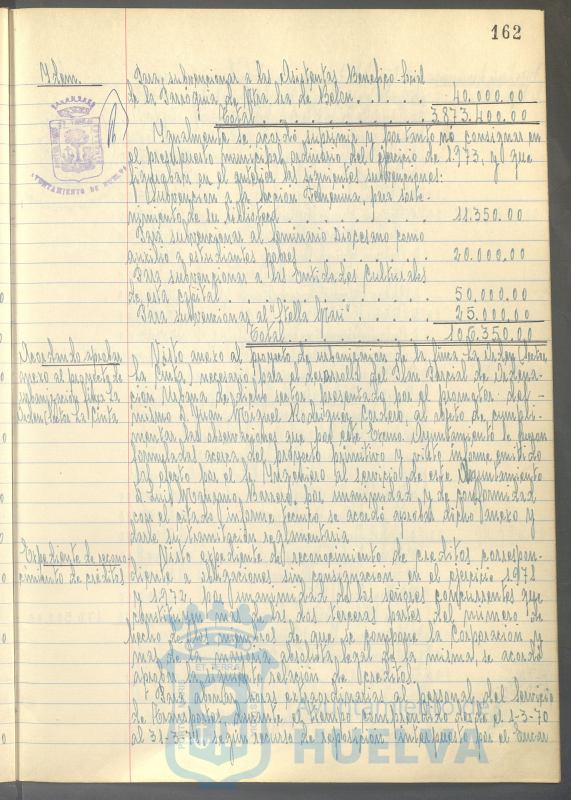 162
Idem.
Para subvencionar a las Asistentas Benefico-Social
de la Parroquia de Ntra Sra de Belen . . . . . 40.000.00
Total . . . . . 3.873.400.00
Igualmente se acordó suprimir y por tanto no consignar en
el presupuesto municipal ordinario del ejercicio de 1973, y que
figuraban en el anterior las siguientes subvenciones:
Subvencion a la Sección Femenina, para soste-
nimiento de su biblioteca . . . . . 11.350.00
Para subvencionar al Seminario Diocesano como
auxilio a estudiantes pobres . . . . . 20.000.00
Para subvencionar a las Entidades Culturales
de esta capital . . . . . 50.000.00
Para subvencionar al "Stella Mari" . . . . . 25.000.00
Total . . . . . 106.350.00
Acordando aprobar
anexo al proyecto de
urbanizacion finca La
Orden (Sector La Cinta
Visto anexo al proyecto de urbanizacion de la finca La Orden (Sector
La Cinta) necesario para el desarrollo del Plan Parcial de Ordena-
cion Urbana de dicho sector, presentado por el promotor del
mismo D. Juan Miguel Rodriguez Cordero, al objeto de cumpli-
mentar las observaciones que por este Excmo. Ayuntamiento le fueron
formuladas acerca del proyecto primitivo y visto informe emitido
al efecto por el Sr. Ingeniero al servicio de este Ayuntamiento
D. Luis Manzano, por unanimidad y de conformidad
con el citado informe tecnico se acordó aprobar dicho anexo y
darle su tramitación reglamentaria.
Expediente de recono-
cimiento de creditos
Visto expediente de reconocimiento de creditos correspon-
diente a obligaciones sin consignacion en el ejercicio 1971
y 1972, por unanimidad de los señores concurrentes que
constituyen mas de las dos terceras partes del numero de
hecho de los miembros de que se compone la Corporacion y
mas de la mayoria absoluta legal de la misma, se acordó
aprobar la siguiente relacion de creditos.
Para abonar horas extraordinarias al personal del Servicio
de Transportes, durante el tiempo comprendido desde el 1-3-70
al 31-3-71, segun recurso de reposicion interpuesto por el
AYUNTAMIENTO DE HUELVA
Ayuntamiento de
HUELVA